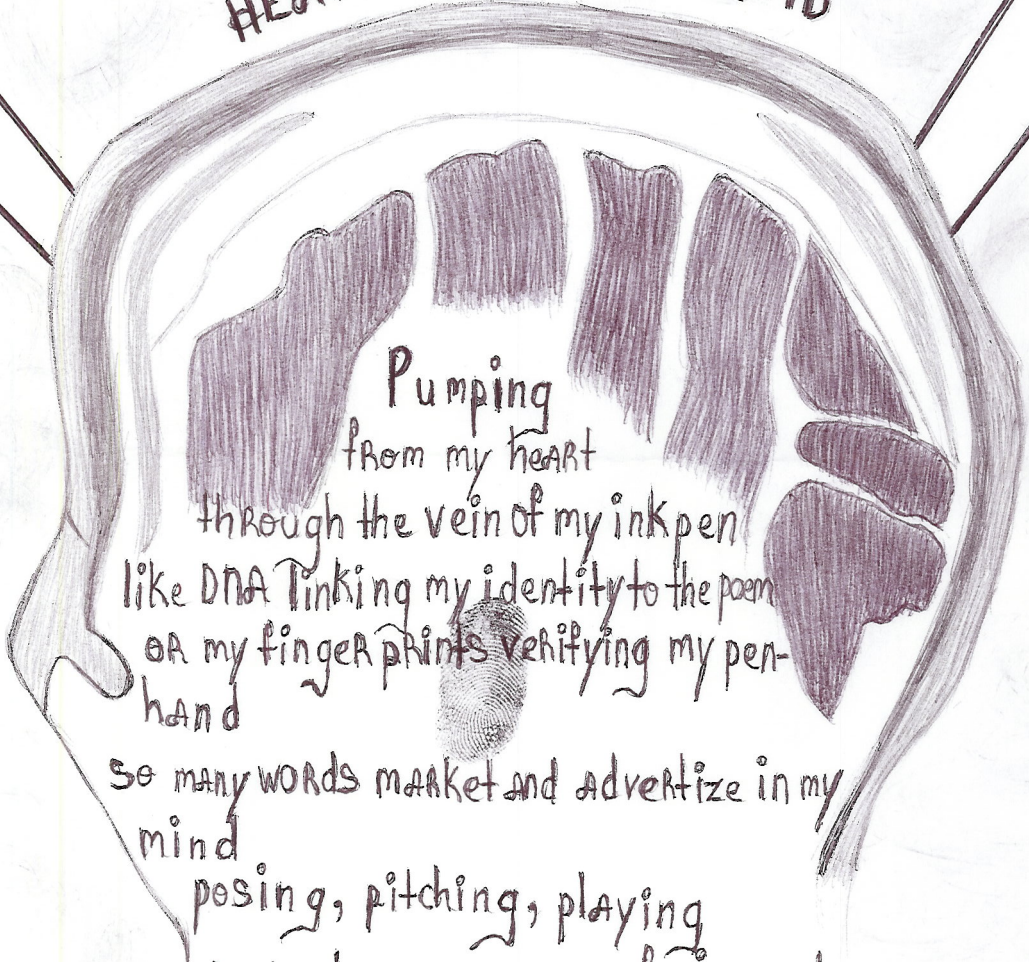 Pumping
from my heart
through the vein of my ink pen
like DNA linking my identity to the poem
or my finger prints verifying my pen-
hand
so many words market and advertize in my
mind
posing, pitching, playing